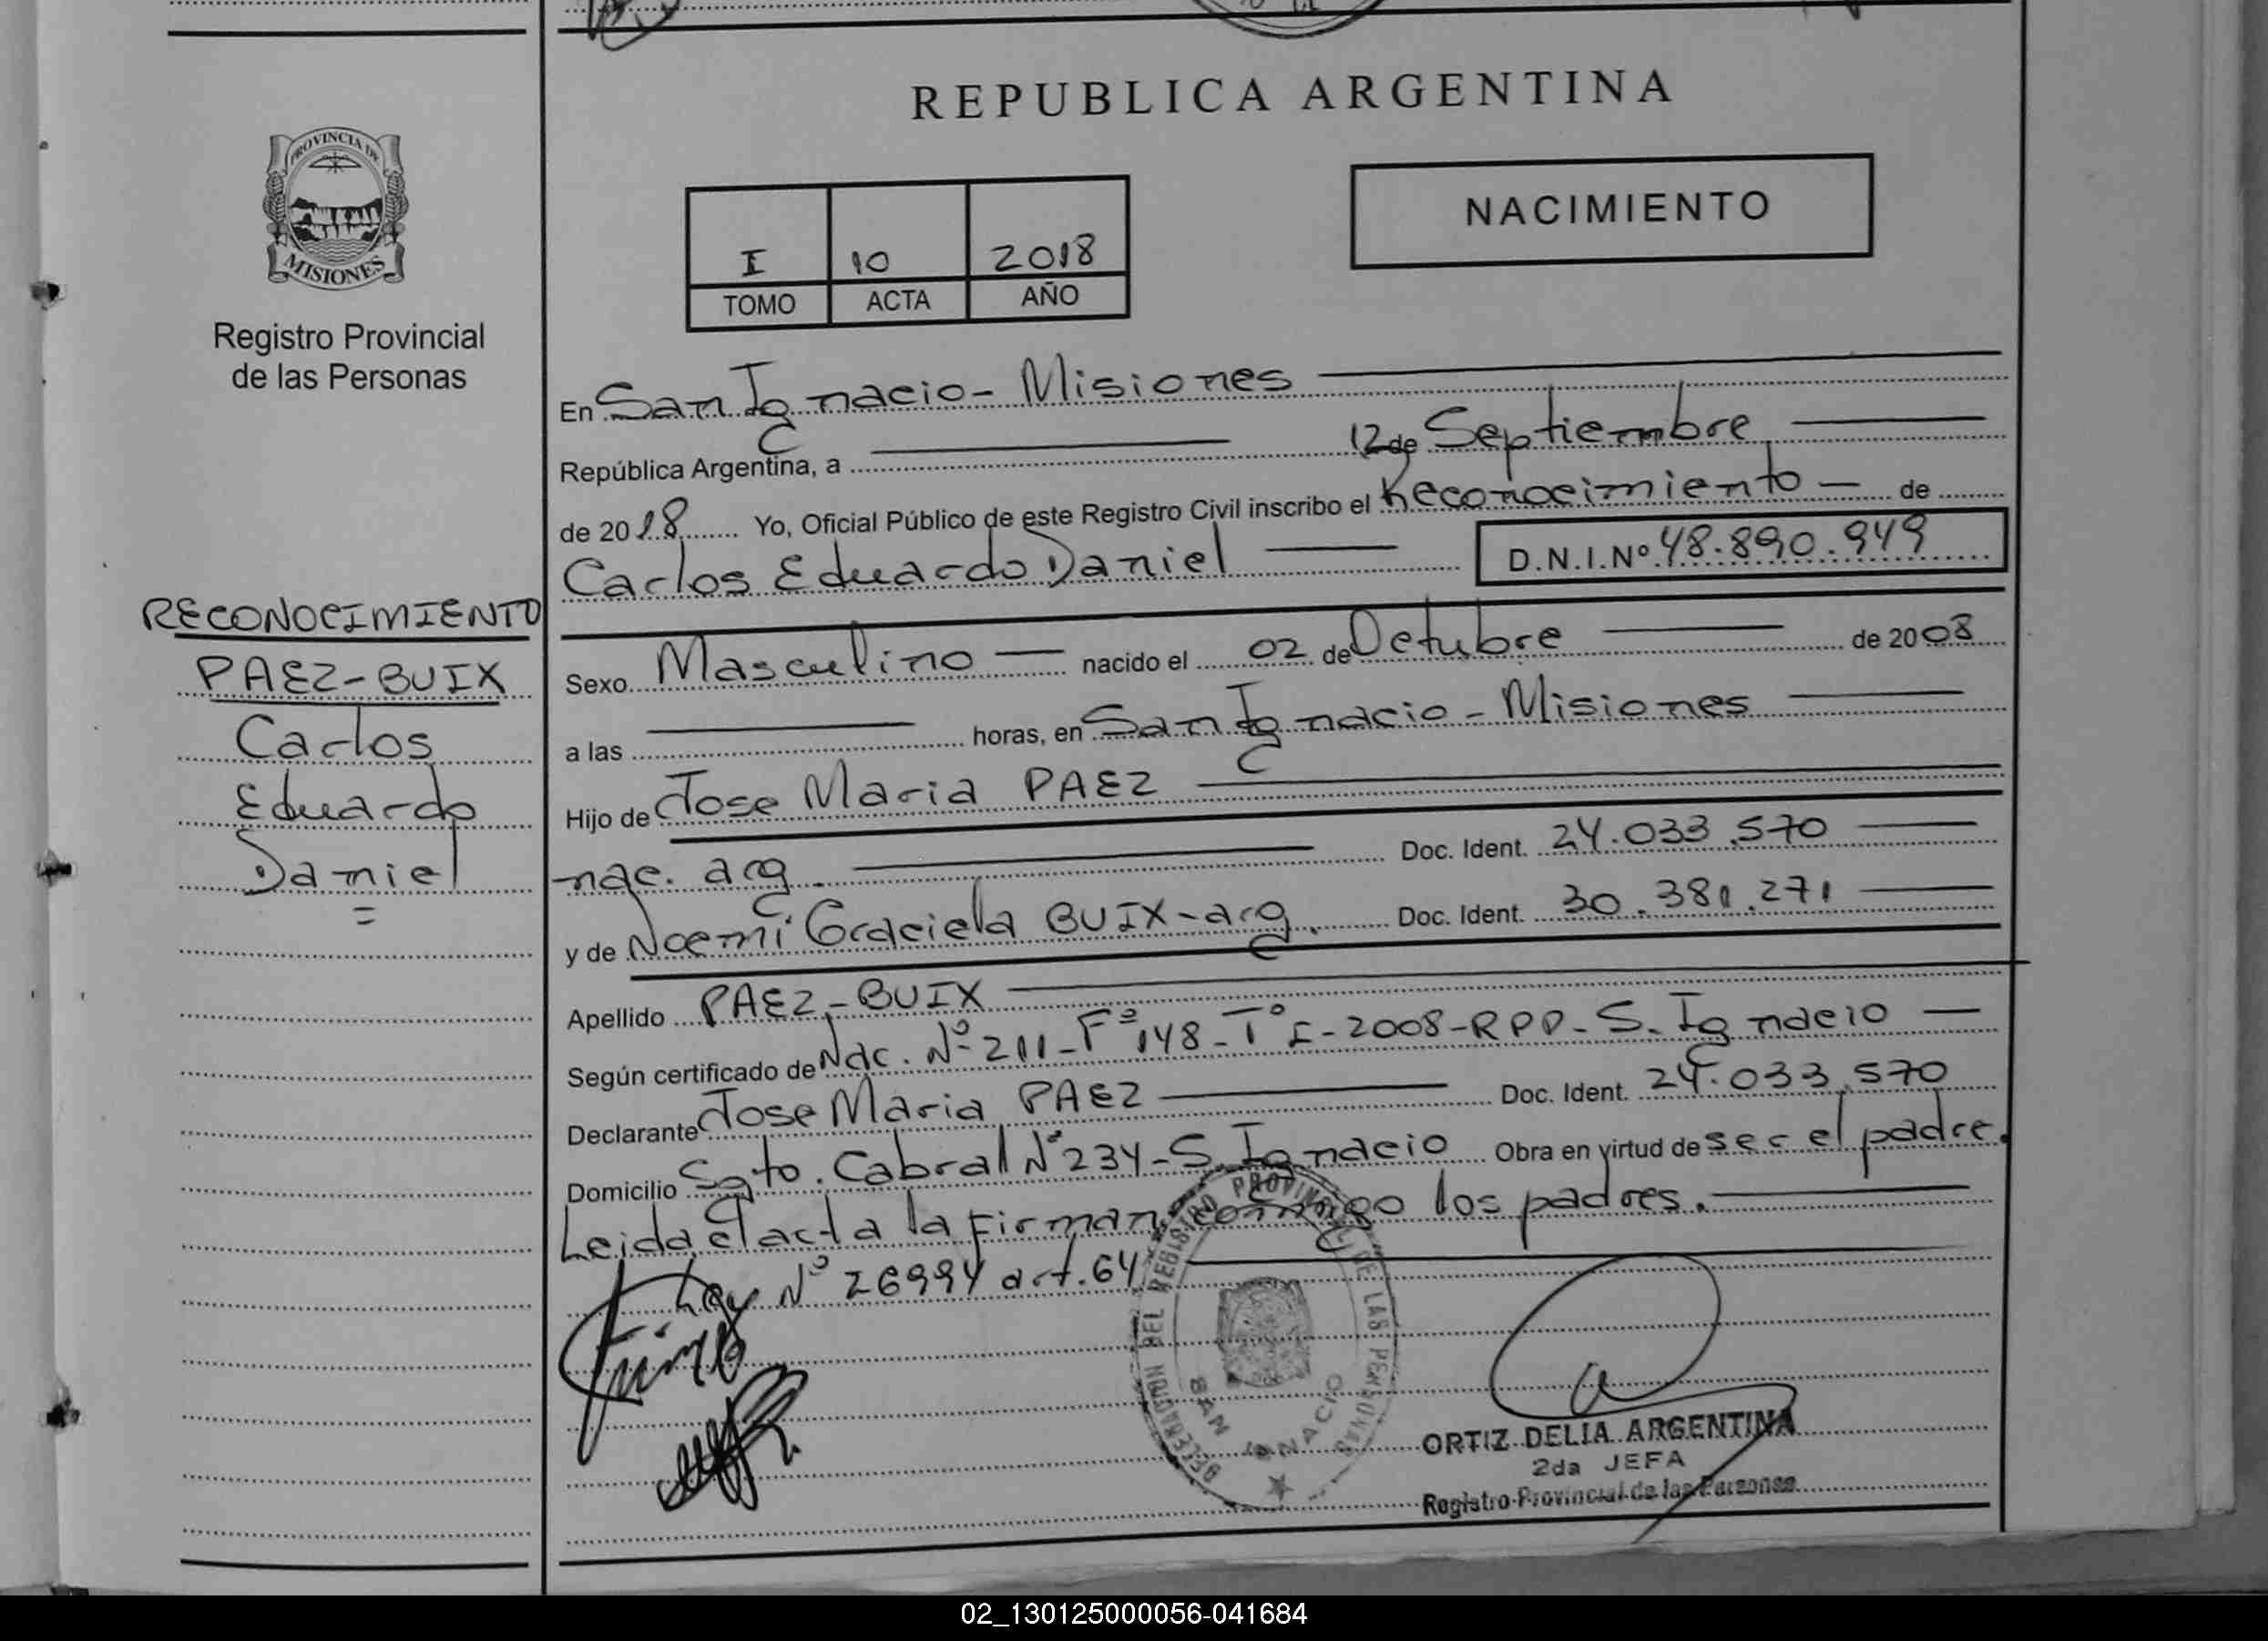 REPUBLICA ARGENTINA
PROVINCIA DE
MISIONES
Registro Provincial
de las Personas
NACIMIENTO
I 10 2018
TOMO ACTA AÑO
En San Ignacio - Misiones
República Argentina, a 12 de Septiembre
de 2018 Yo, Oficial Público de este Registro Civil inscribo el Reconocimiento - de
Carlos Eduardo Daniel D.N.I.Nº 48.890.949
RECONOCIMIENTO
PAEZ-BUIX
Carlos
Eduardo
Daniel
=
Sexo Masculino - nacido el 02 de Octubre de 2008
a las horas, en San Ignacio - Misiones
Hijo de Jose Maria PAEZ
nac. arg. Doc. Ident. 24.033.570
y de Noemi Graciela BUIX-arg. Doc. Ident. 30.381.271
Apellido PAEZ-BUIX
Según certificado de Nac. Nº 211-Fº 148-Tº I-2008-RPP-S. Ignacio -
Declarante Jose Maria PAEZ Doc. Ident. 24.033.570
Domicilio Sgto. Cabral Nº 234-S. Ignacio Obra en virtud de ser el padre.
Leida el acta la firman conmigo los padres.
Ley Nº 26994 art. 64
REGISTRO PROVINCIAL DE LAS PERSONAS
SAN IGNACIO
ORTIZ DELIA ARGENTINA
2da JEFA
Registro Provincial de las Personas
02_130125000056-041684